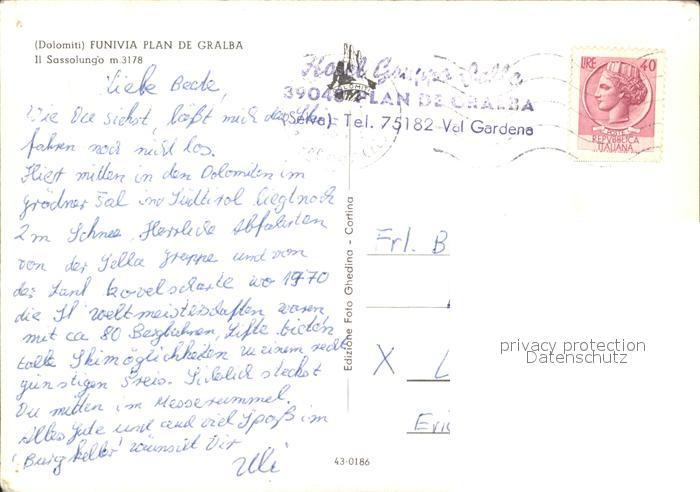 (Dolomiti) FUNIVIA PLAN DE GRALBA
Il Sassolungo m. 3178
Liebe Beate,
Wie Du siehst, läßt mich das Ski-
fahren noch nicht los.
Hier mitten in den Dolomiten im
Grödner Tal in Südtirol liegt noch
2m Schnee. Herrliche Abfahrten
von der Sella Gruppe und von
der wo 1970
die Skiweltmeisterschaften waren
mit ca 80 Bergbahnen, Lifte bieten
tolle Skimöglichkeiten zu einem recht
günstigen Preis. Sicherlich steckst
Du mitten im Messerummel.
Alles Gute und und viel Spaß im
'Burgkeller' wünscht Dir
Uli
Hotel Gruppo Sella
39048 PLAN DE GRALBA
(Selva) Tel. 75182 Val Gardena
LIRE 40
POSTE
REPVBBLICA
ITALIANA
Edizione Foto Ghedina - Cortina
Frl. B
X L
Eric
43-0186
privacy protection
Datenschutz